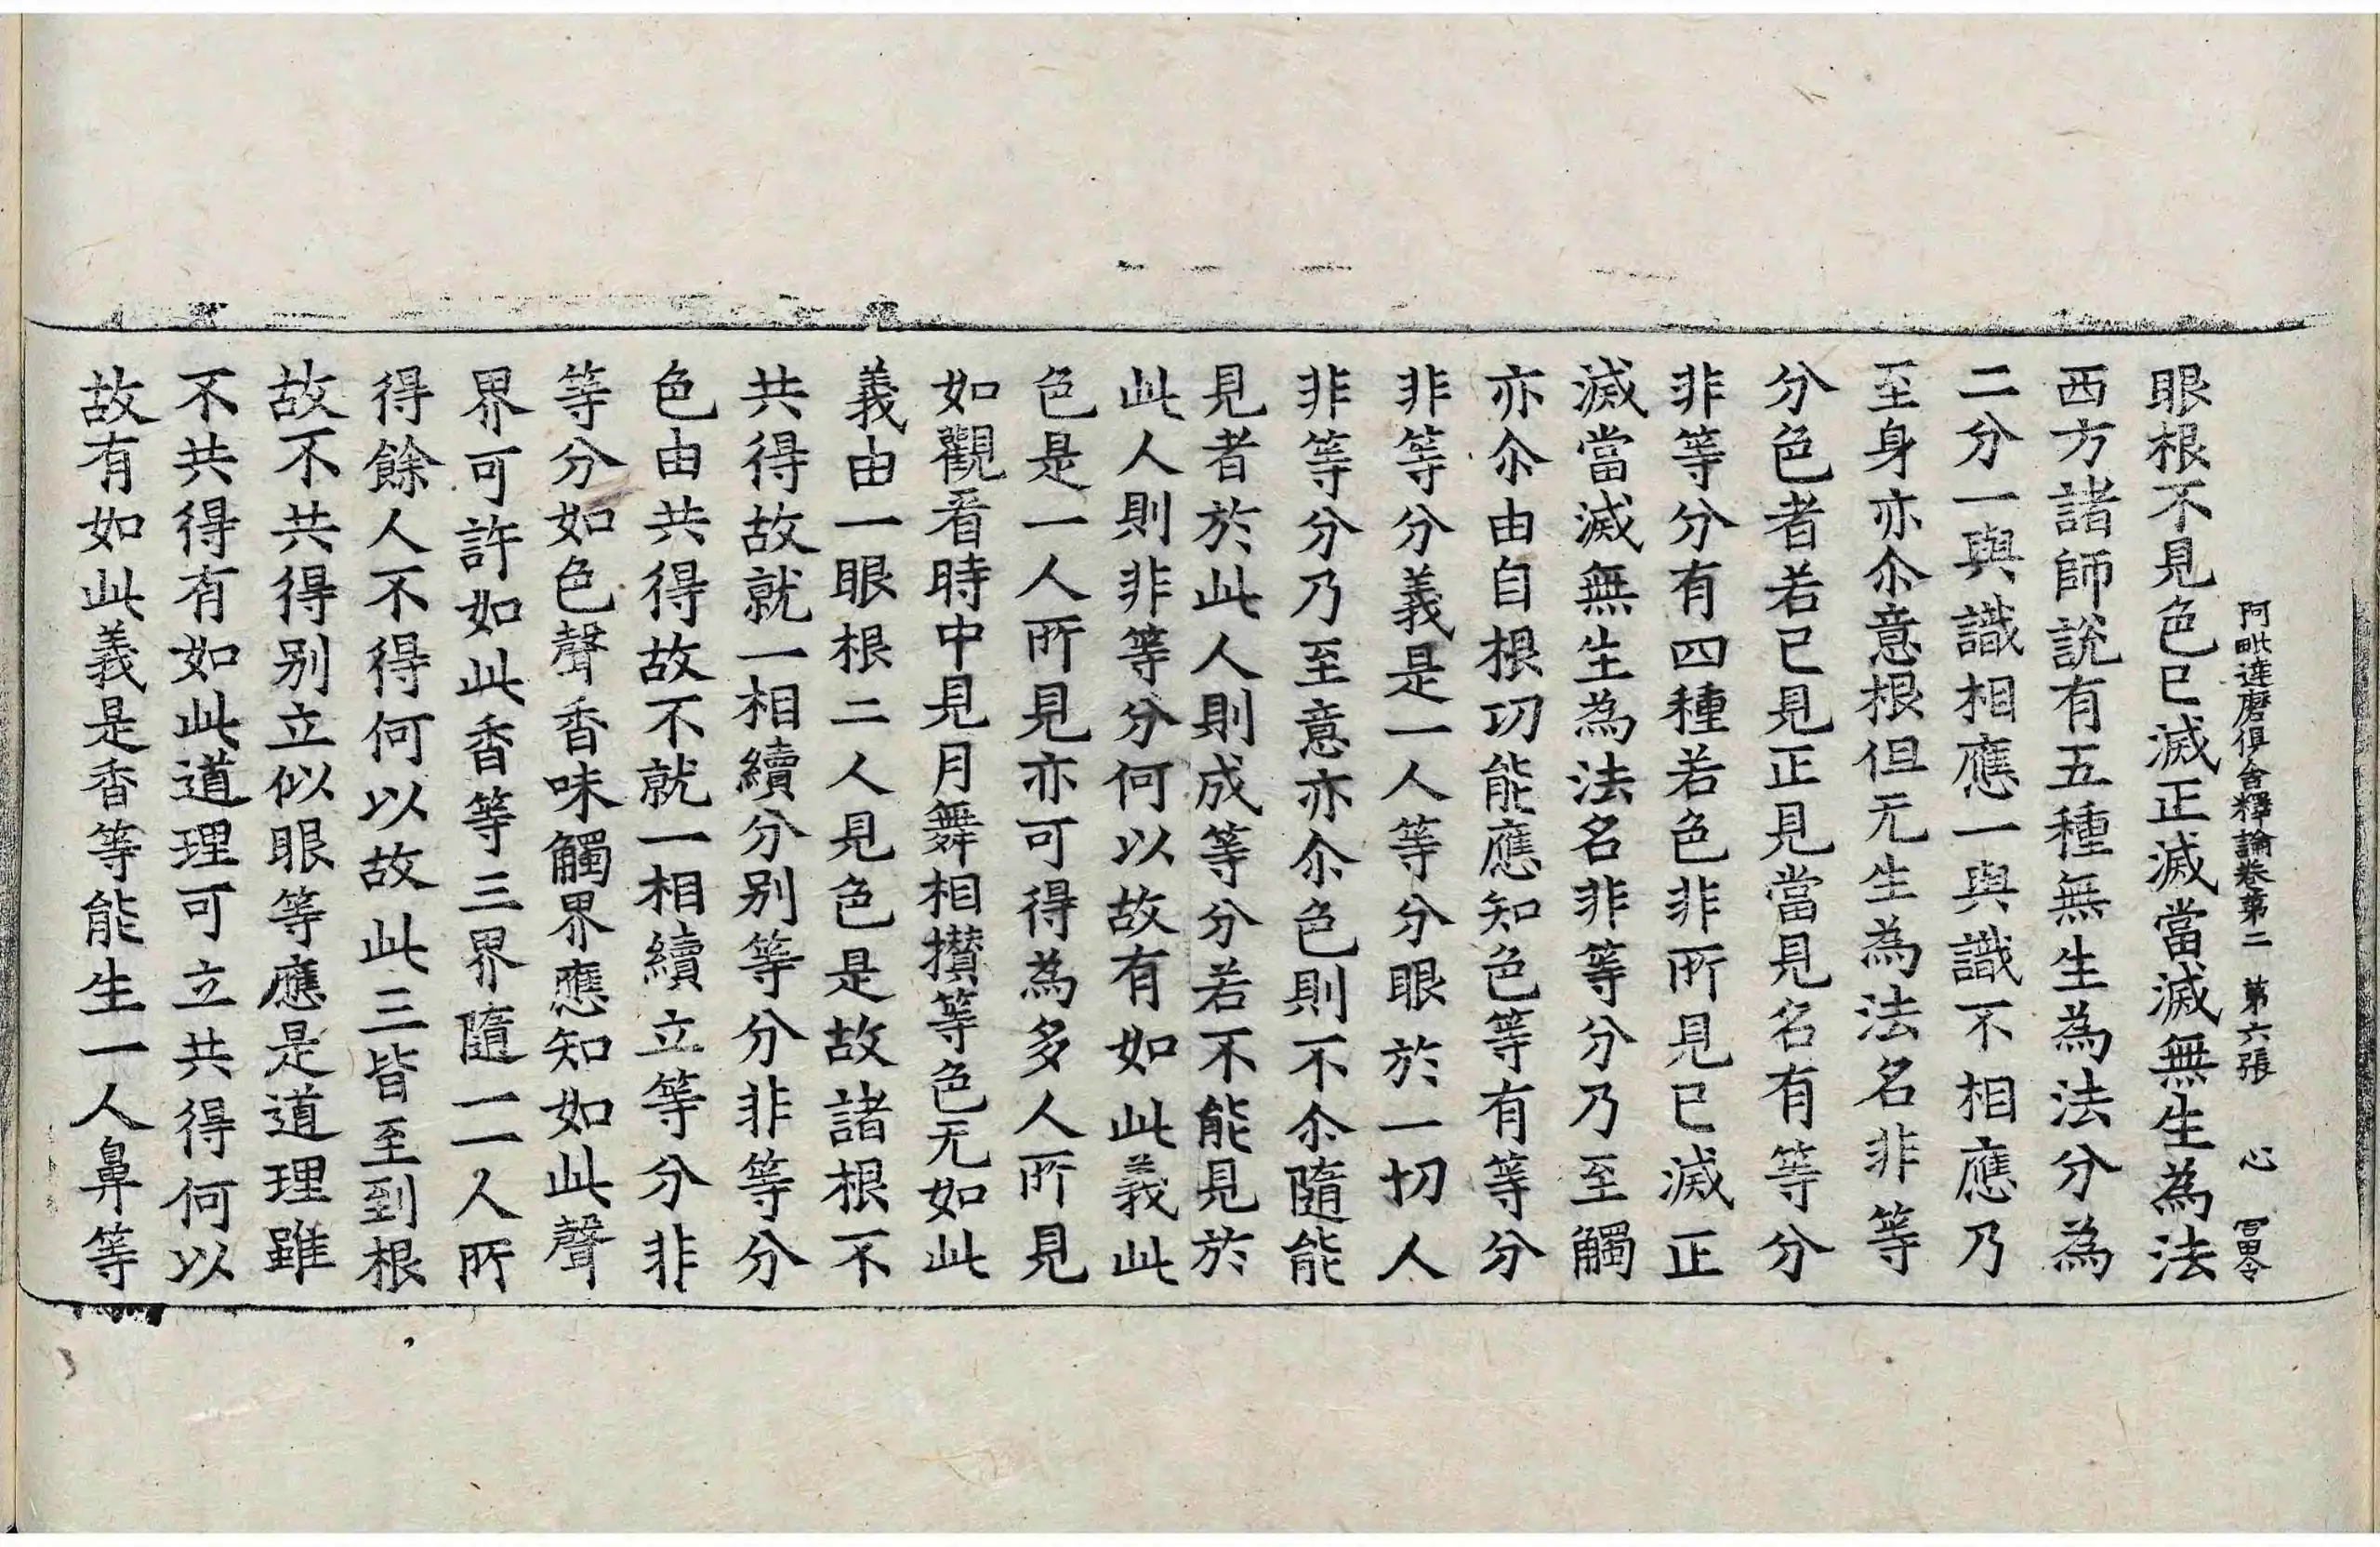 阿毗達磨俱舍釋論卷第二　第六張　心　冨令
眼根不見色已滅正滅當滅無生為法
西方諸師說有五種無生為法分為
二分一與識相應一與識不相應乃
至身亦尒意根但无生為法名非等
分色者若已見正見當見名有等分
非等分有四種若色非所見已滅正
滅當滅無生為法名非等分乃至觸
亦尒由自根功能應知色等有等分
非等分義是一人等分眼於一切人
非等分乃至意亦尒色則不尒隨能
見者於此人則成等分若不能見於
此人則非等分何以故有如此義此
色是一人所見亦可得為多人所見
如觀看時中見月舞相攢等色无如此
義由一眼根二人見色是故諸根不
共得故就一相續分別等分非等分
色由共得故不就一相續立等分非
等分如色聲香味觸界應知如此聲
界可許如此香等三界隨一一人所
得餘人不得何以故此三皆至到根
故不共得別立似眼等應是道理雖
不共得有如此道理可立共得何以
故有如此義是香等能生一人鼻等